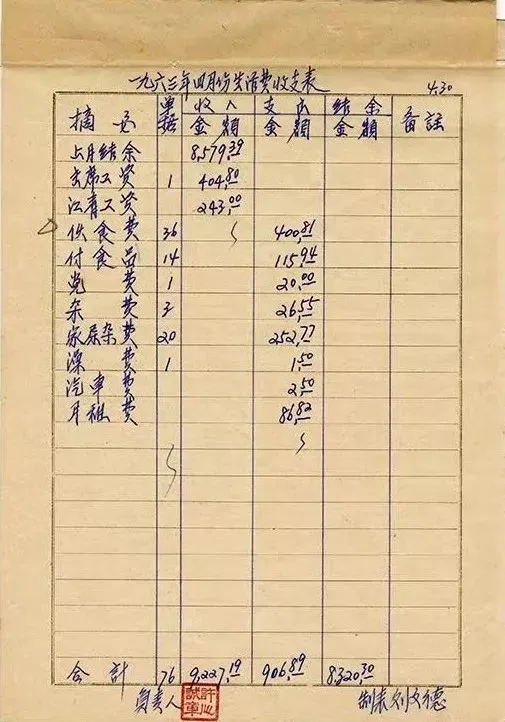 一九六三年四月份生活费收支表 4.30
摘要 单据 收入金额 支出金额 结余金额 备註
上月结余 8,579.39
主席工资 1 404.80
江青工资 243.00
伙食费 36 400.81
付食品 14 115.94
党费 1 20.00
杂费 3 26.55
家屋杂费 20 252.77
澡费 1 1.50
汽车费 2.50
月租费 86.82
合計 76 9,227.19 906.89 8320.30
負責人 制表 刘文德